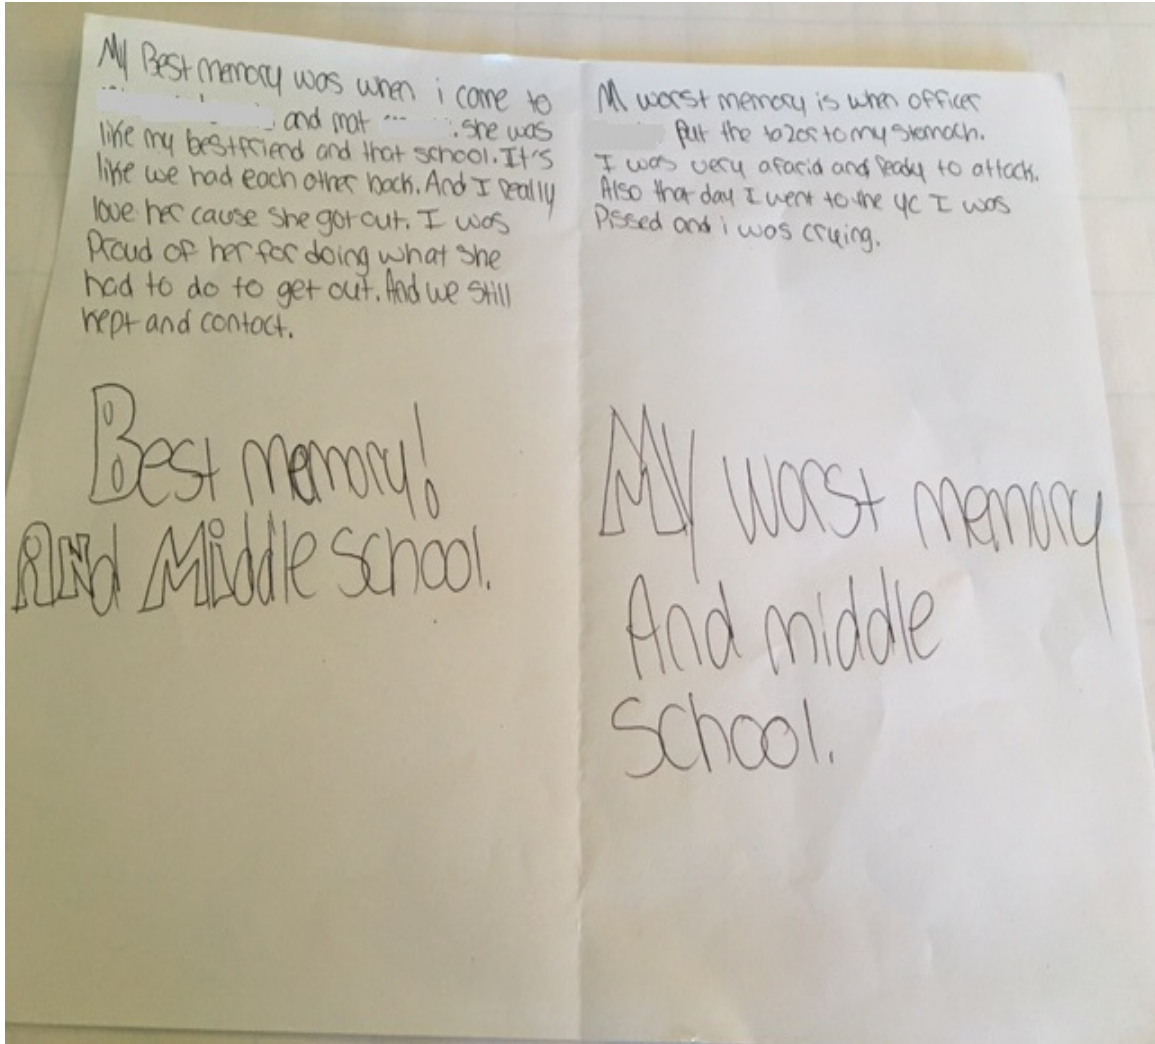 My Best memory was when i came to
and mat . she was
like my bestfriend and that school. It's
like we had each other back. And I really
love her cause she got out. I was
Proud of her for doing what she
had to do to get out. And we still
kept and contact.
Best memory!
AND Middle school.
M worst memory is when officer
put the tazer to my stomach.
I was very afarid and ready to attack.
Also that day I went to the yc I was
Pissed and i was crying.
My worst memory
And middle
school.